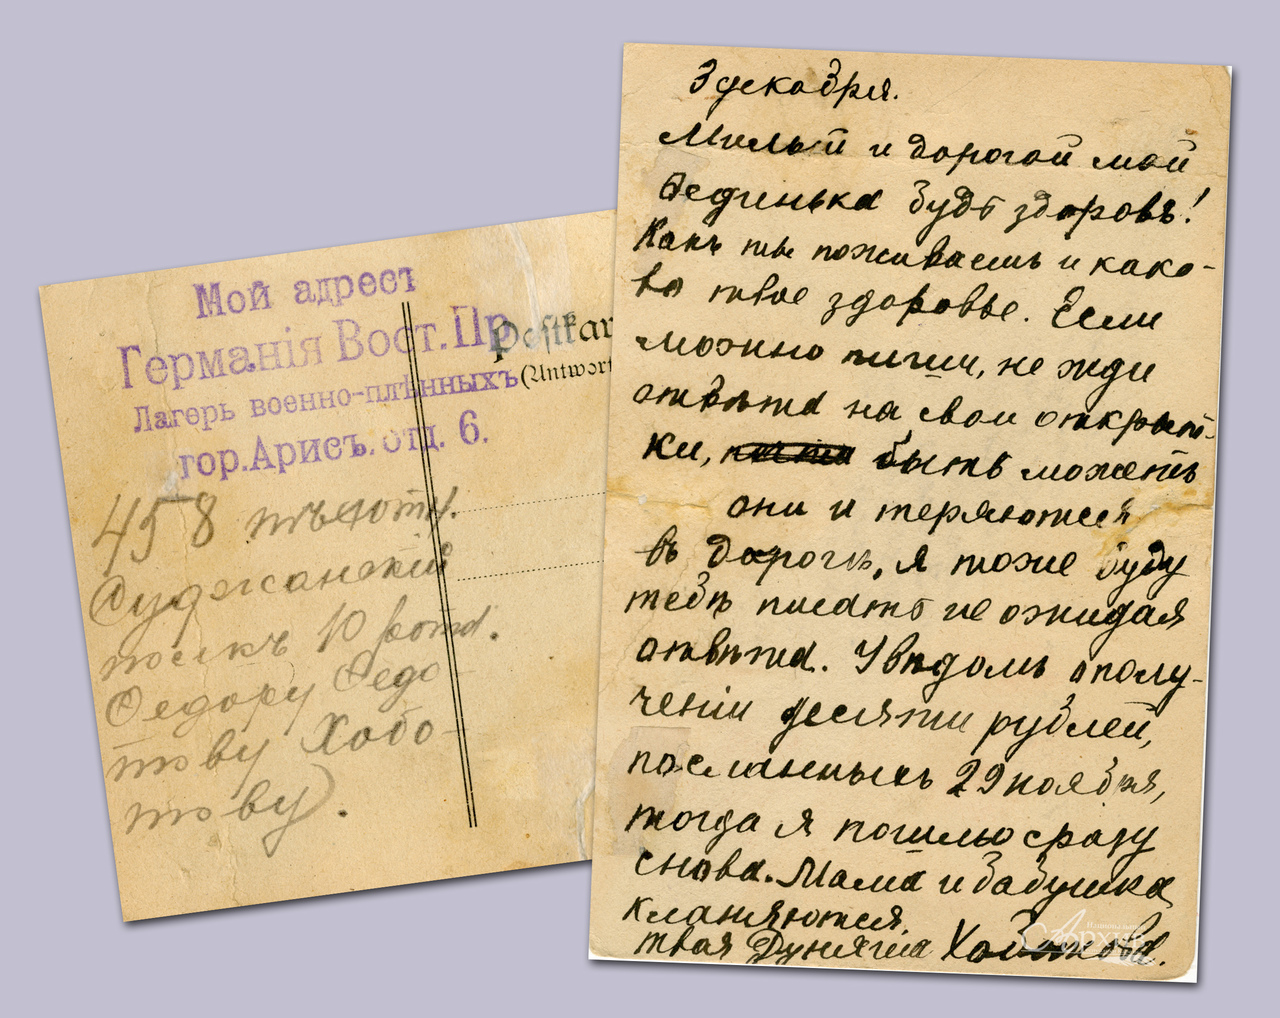 Мой адрест
Германія Вост. Пр
Лагерь военно-плѣнныхъ
гор. Арисъ. отд. 6.
Postkar
(Antwort
458 пѣхотн.
Суджанскій
полкъ 10 рота.
Федору Федо-
тову Хобо-
тову.
3 декабря.
Милый и дорогой мой
Фединька будь здоровъ!
Какъ ты поживаешь и како-
во твое здоровье. Если
можно пиши, не жди
отвѣта на свои открыт-
ки, быть можетъ
они и теряются
въ дорогѣ, я тоже буду
тебѣ писать не ожидая
отвѣта. Увѣдомь о полу-
ченіи десяти рублей,
посланныхъ 29 ноября,
тогда я пошлю сразу
снова. Мама и бабушка
кланяются.
твоя Дуняша Хоботова.
Национальный
Архив